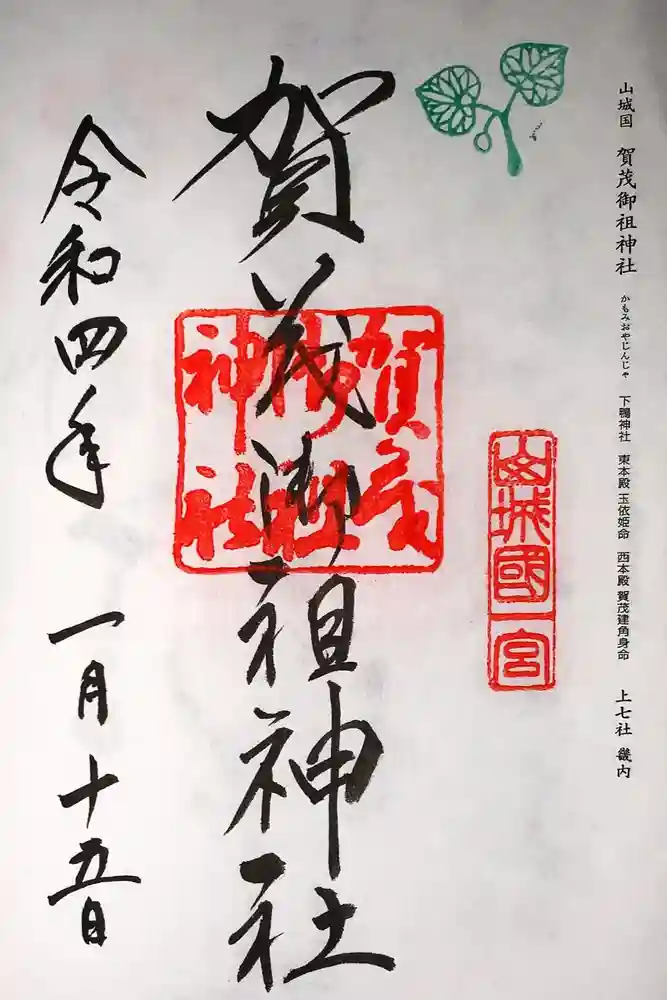 山城国 賀茂御祖神社 かもみおやじんじゃ 下鴨神社 東本殿 玉依姫命 西本殿 賀茂建角身命 上七社 畿内
山城國一宮
賀茂御祖神社
賀茂
御祖
神社
令和四年 一月十五日